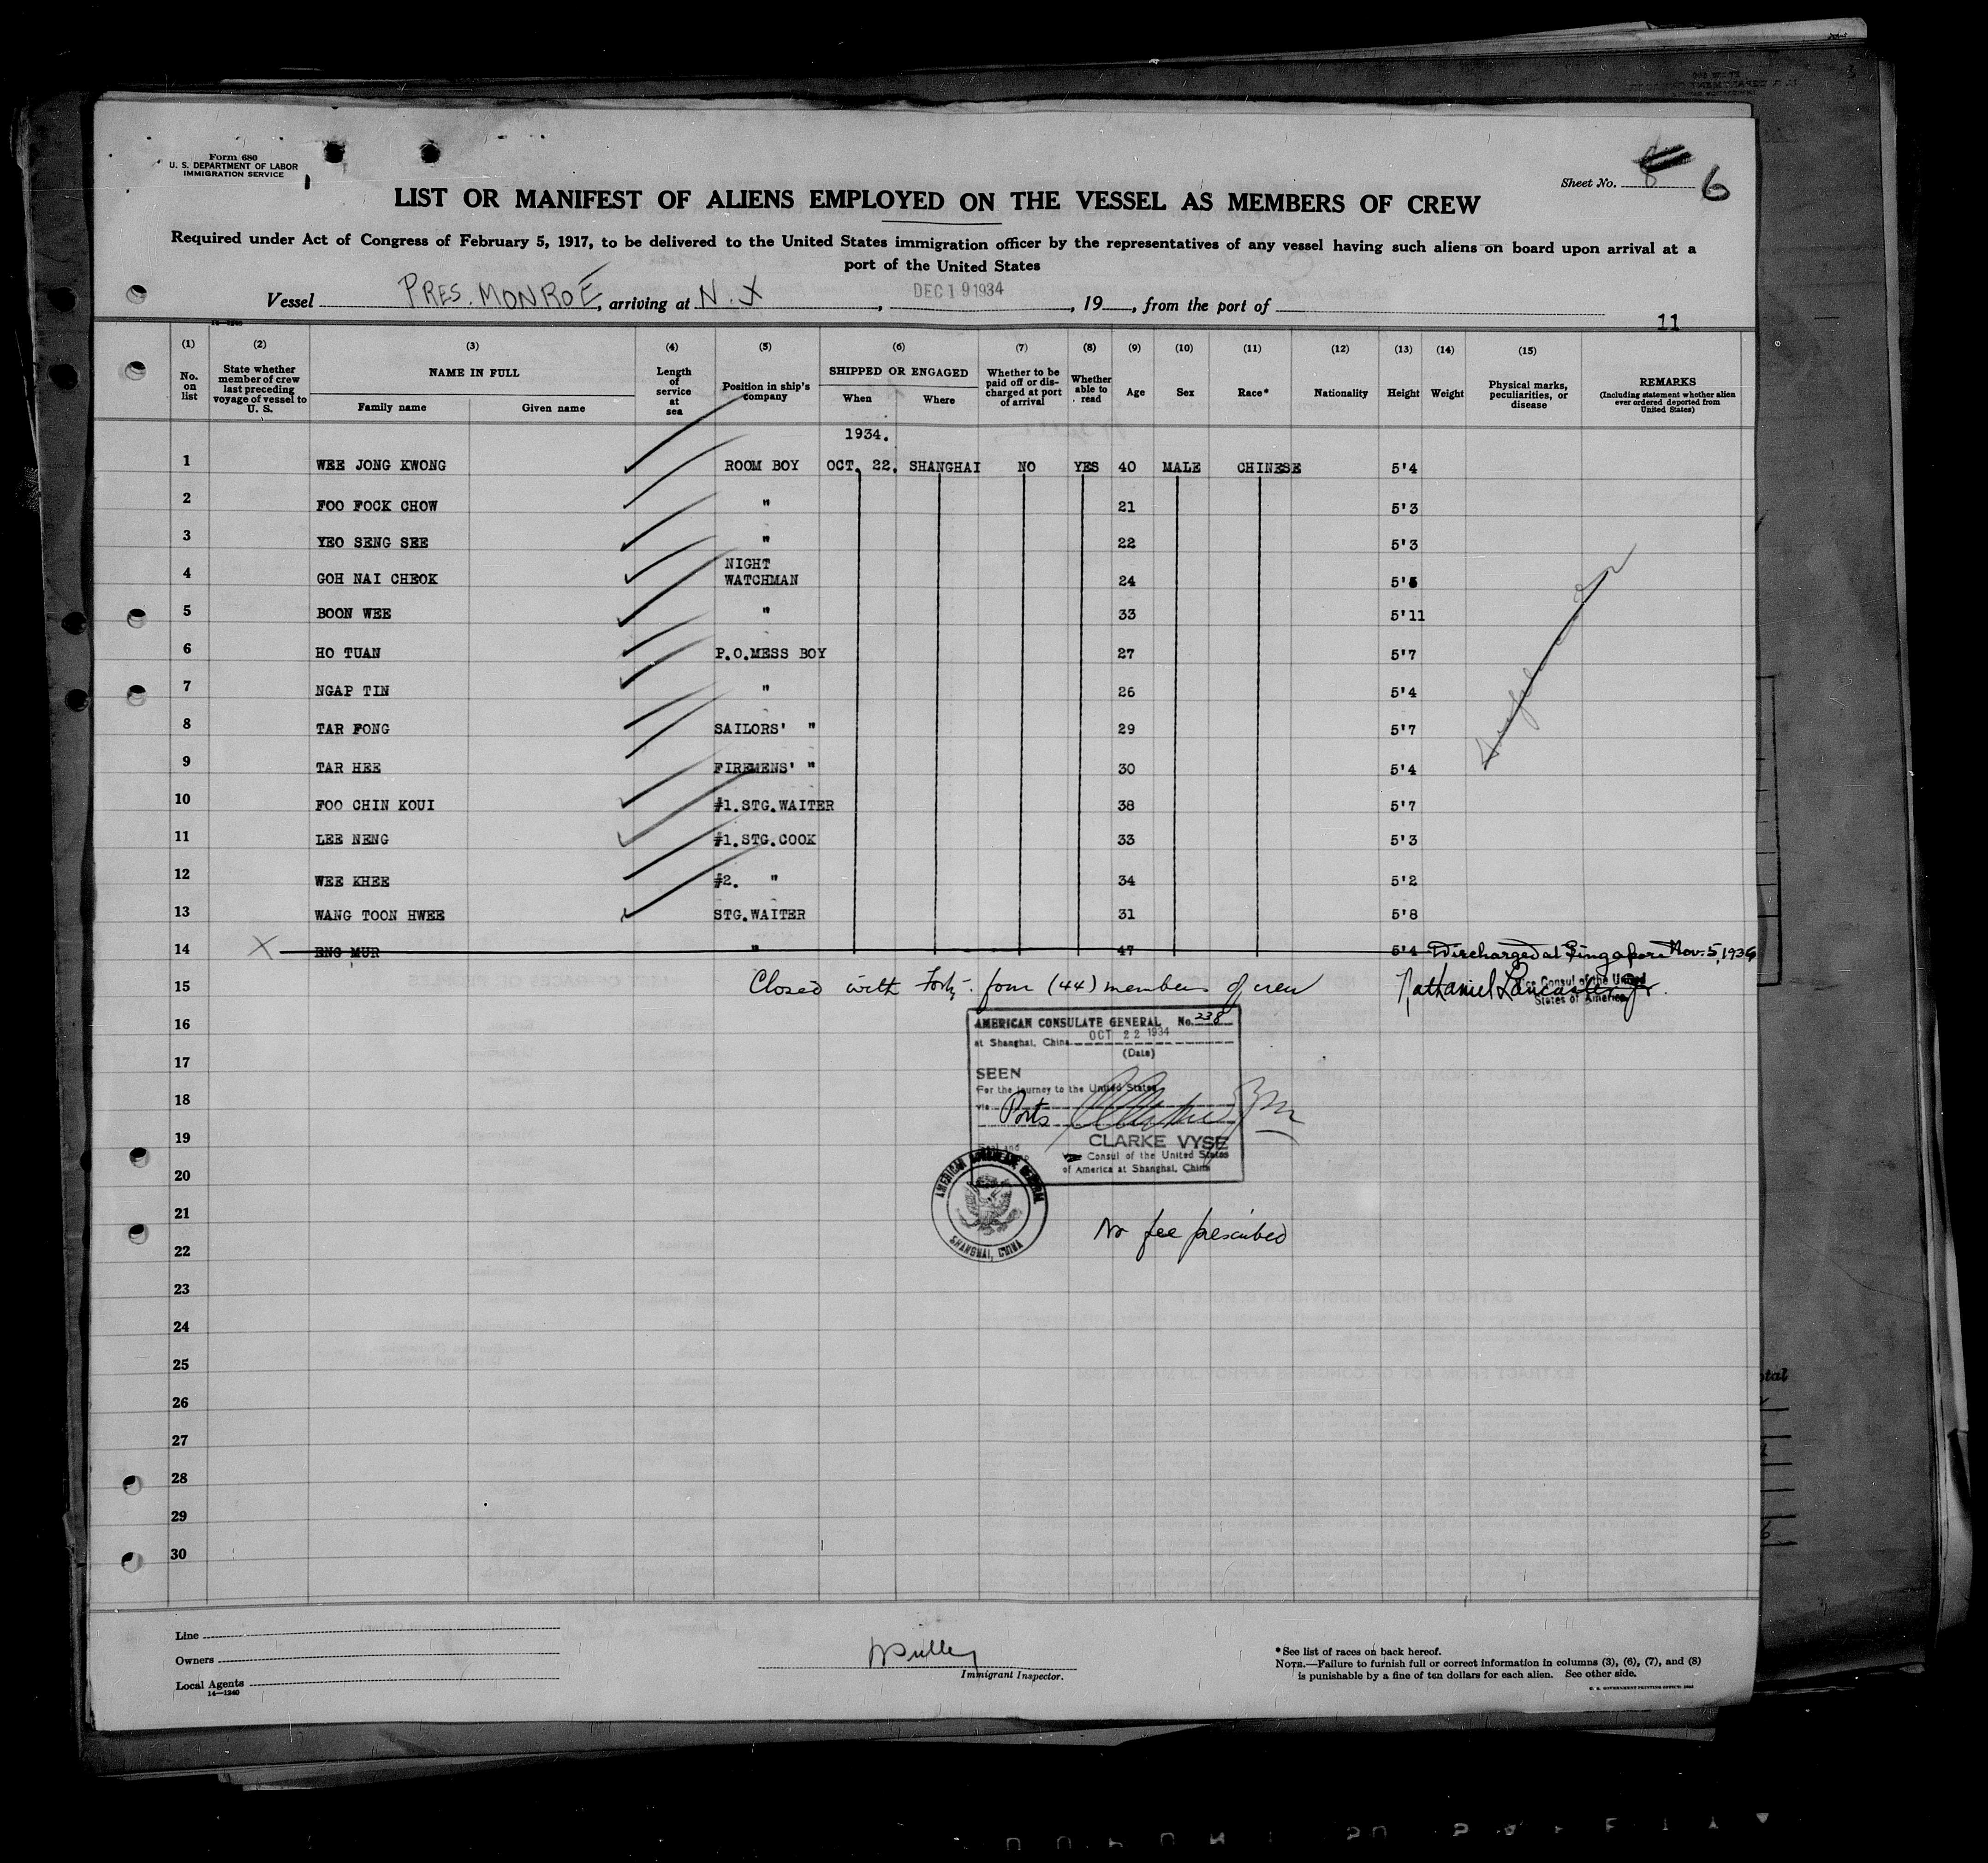 Form 680
U. S. DEPARTMENT OF LABOR
IMMIGRATION SERVICE
Sheet No. 6
LIST OR MANIFEST OF ALIENS EMPLOYED ON THE VESSEL AS MEMBERS OF CREW
Required under Act of Congress of February 5, 1917, to be delivered to the United States immigration officer by the representatives of any vessel having such aliens on board upon arrival at a
port of the United States
Vessel PRES. MONROE, arriving at N.Y, DEC 19 1934, 19, from the port of
11
(1) (2) (3) (4) (5) (6) (7) (8) (9) (10) (11) (12) (13) (14) (15)
No. on list State whether member of crew last preceding voyage of vessel to U. S. NAME IN FULL Family name Given name Length of service at sea Position in ship's company SHIPPED OR ENGAGED When Where Whether to be paid off or discharged at port of arrival Whether able to read Age Sex Race* Nationality Height Weight Physical marks, peculiarities, or disease REMARKS (Including statement whether alien ever ordered deported from United States)
1934.
1 WEE JONG KWONG ROOM BOY OCT. 22. SHANGHAI NO YES 40 MALE CHINESE 5'4
2 FOO FOCK CHOW " 21 5'3
3 YEO SENG SEE " 22 5'3
4 GOH NAI CHEOK NIGHT WATCHMAN 24 5'5
5 BOON WEE " 33 5'11
6 HO TUAN P.O.MESS BOY 27 5'7
7 NGAP TIN " 26 5'4
8 TAR FONG SAILORS' " 29 5'7
9 TAR HEE FIREMENS' " 30 5'4
10 FOO CHIN KOUI #1.STG.WAITER 38 5'7
11 LEE NENG #1.STG.COOK 33 5'3
12 WEE KHEE #2. " 34 5'2
13 WANG TOON HWEE STG.WAITER 31 5'8
14 ENG MUR " 47 5'4 Discharged at Singapore Nov. 5, 1934
15 Closed with Forty-four (44) members of crew Nathaniel Lancaster Jr.
Vice Consul of the United
States of America
16
17
18
19
20
21
22
23
24
25
26
27
28
29
30
AMERICAN CONSULATE GENERAL No. 238
at Shanghai, China OCT 22 1934
(Date)
SEEN
For the journey to the United States
via Ports
CLARKE VYSE
Seal and
Vice Consul of the United States
of America at Shanghai, China
AMERICAN CONSULATE GENERAL
SHANGHAI, CHINA
No fee prescribed
Line
Owners
Local Agents
14—1240
Immigrant Inspector.
* See list of races on back hereof.
NOTE.—Failure to furnish full or correct information in columns (3), (6), (7), and (8)
is punishable by a fine of ten dollars for each alien. See other side.